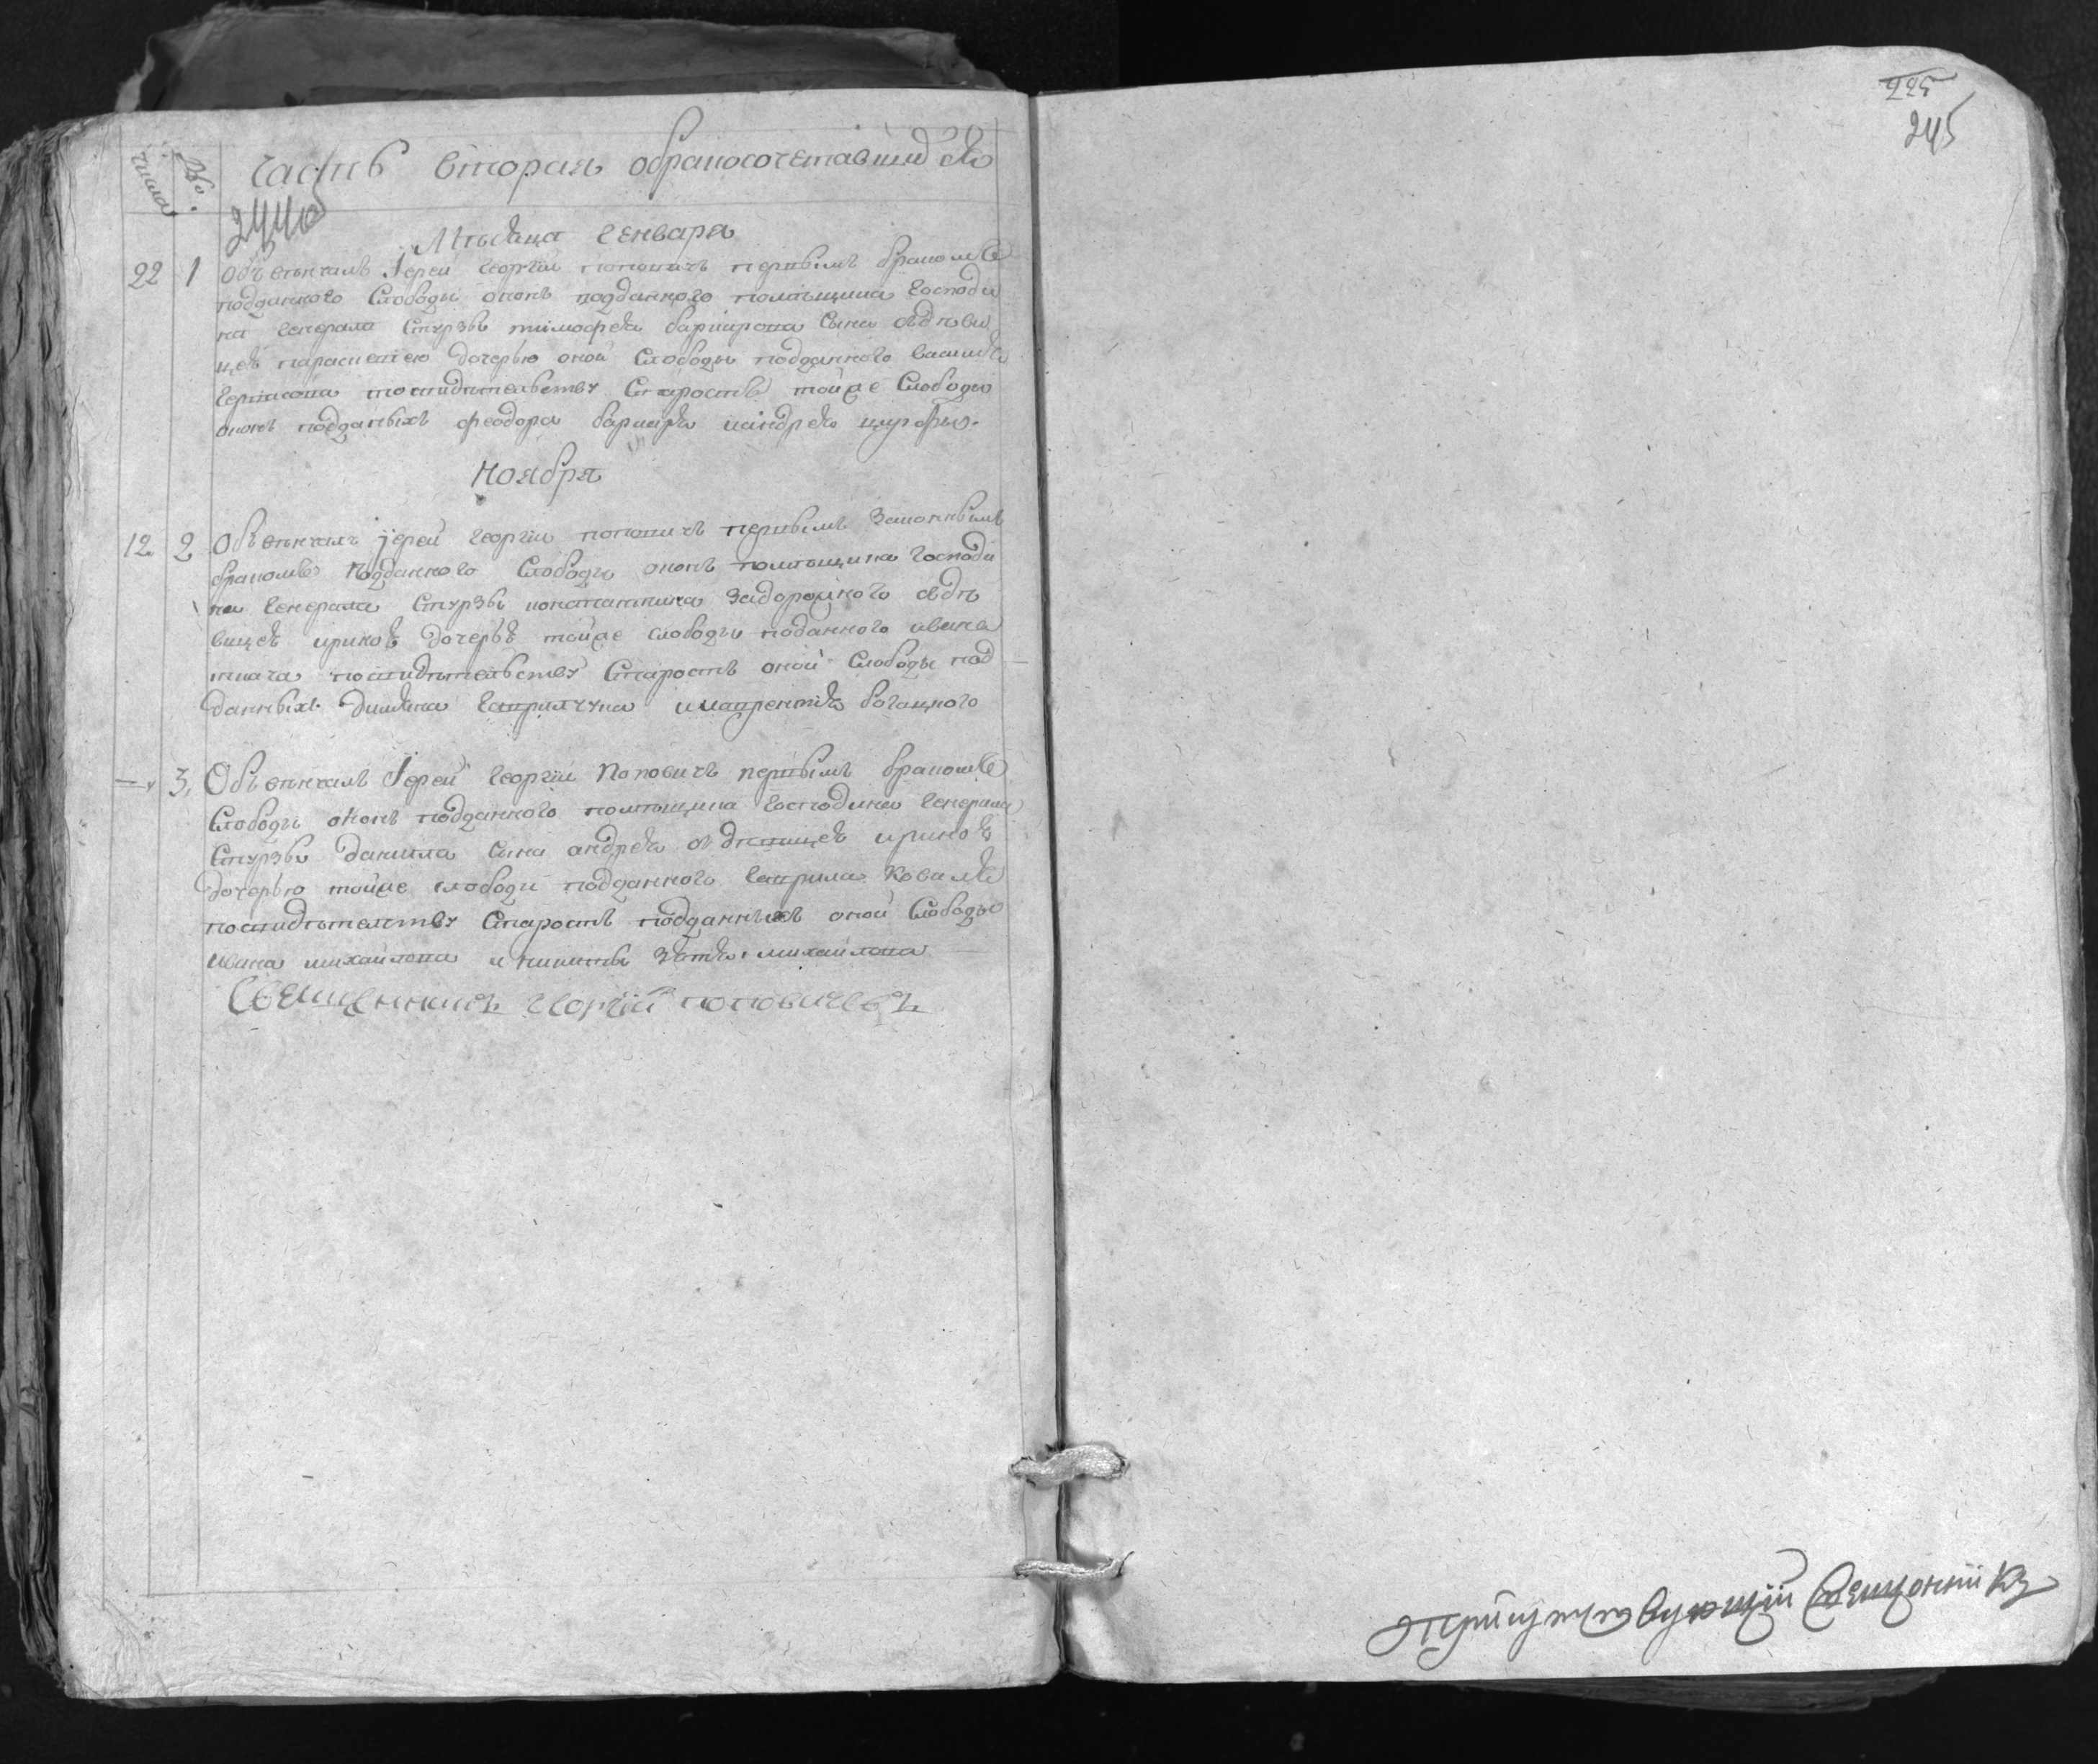 числа №. Часть вторая обракосочетавшихся
2440
Мѣсяца Генваря
22 1 Обвѣнчалъ Іерей Георгій Поповичъ первымъ бракомъ
подданного Слободы онои подданного помѣщика Господи
на Генерала Стурзы тимофея сына здѣви
цею параскевіею дочерью оной Слободы подданного василя
посвидѣтельству Старостѣ тойже Слободы
оноиподданыхъ феодора иандрея
Ноября
12 2 Обвѣнчалъ іерей Георгіи поповичъ первымъ Законнымъ
бракомъ подданного Слободы онои помѣщика Господи
на Генерала Стурзы константина Задорожного здѣ
вицею ириною дочерью тойже слободы поданного ивана
ткача посвидѣтельству Старостѣ оной Слободы под
данныхъ Гаврилчука илаврентія богацкого
3. Обвѣнчалъ Іерей Георгіи Поповичъ первымъ бракомъ
Слободы онои подданного помѣщика Господина Генерала
Стурзы данила сына андрея здѣвицею ириною
дочерью тойже слободи подданного Гаврила Коваля
посвидѣтелству Старостѣ подданныхъ оной Слободы
Ивана михайлова и никиты михайлова
Священникъ Георгій поповичевъ
225
245
Присутствующій Священникъ